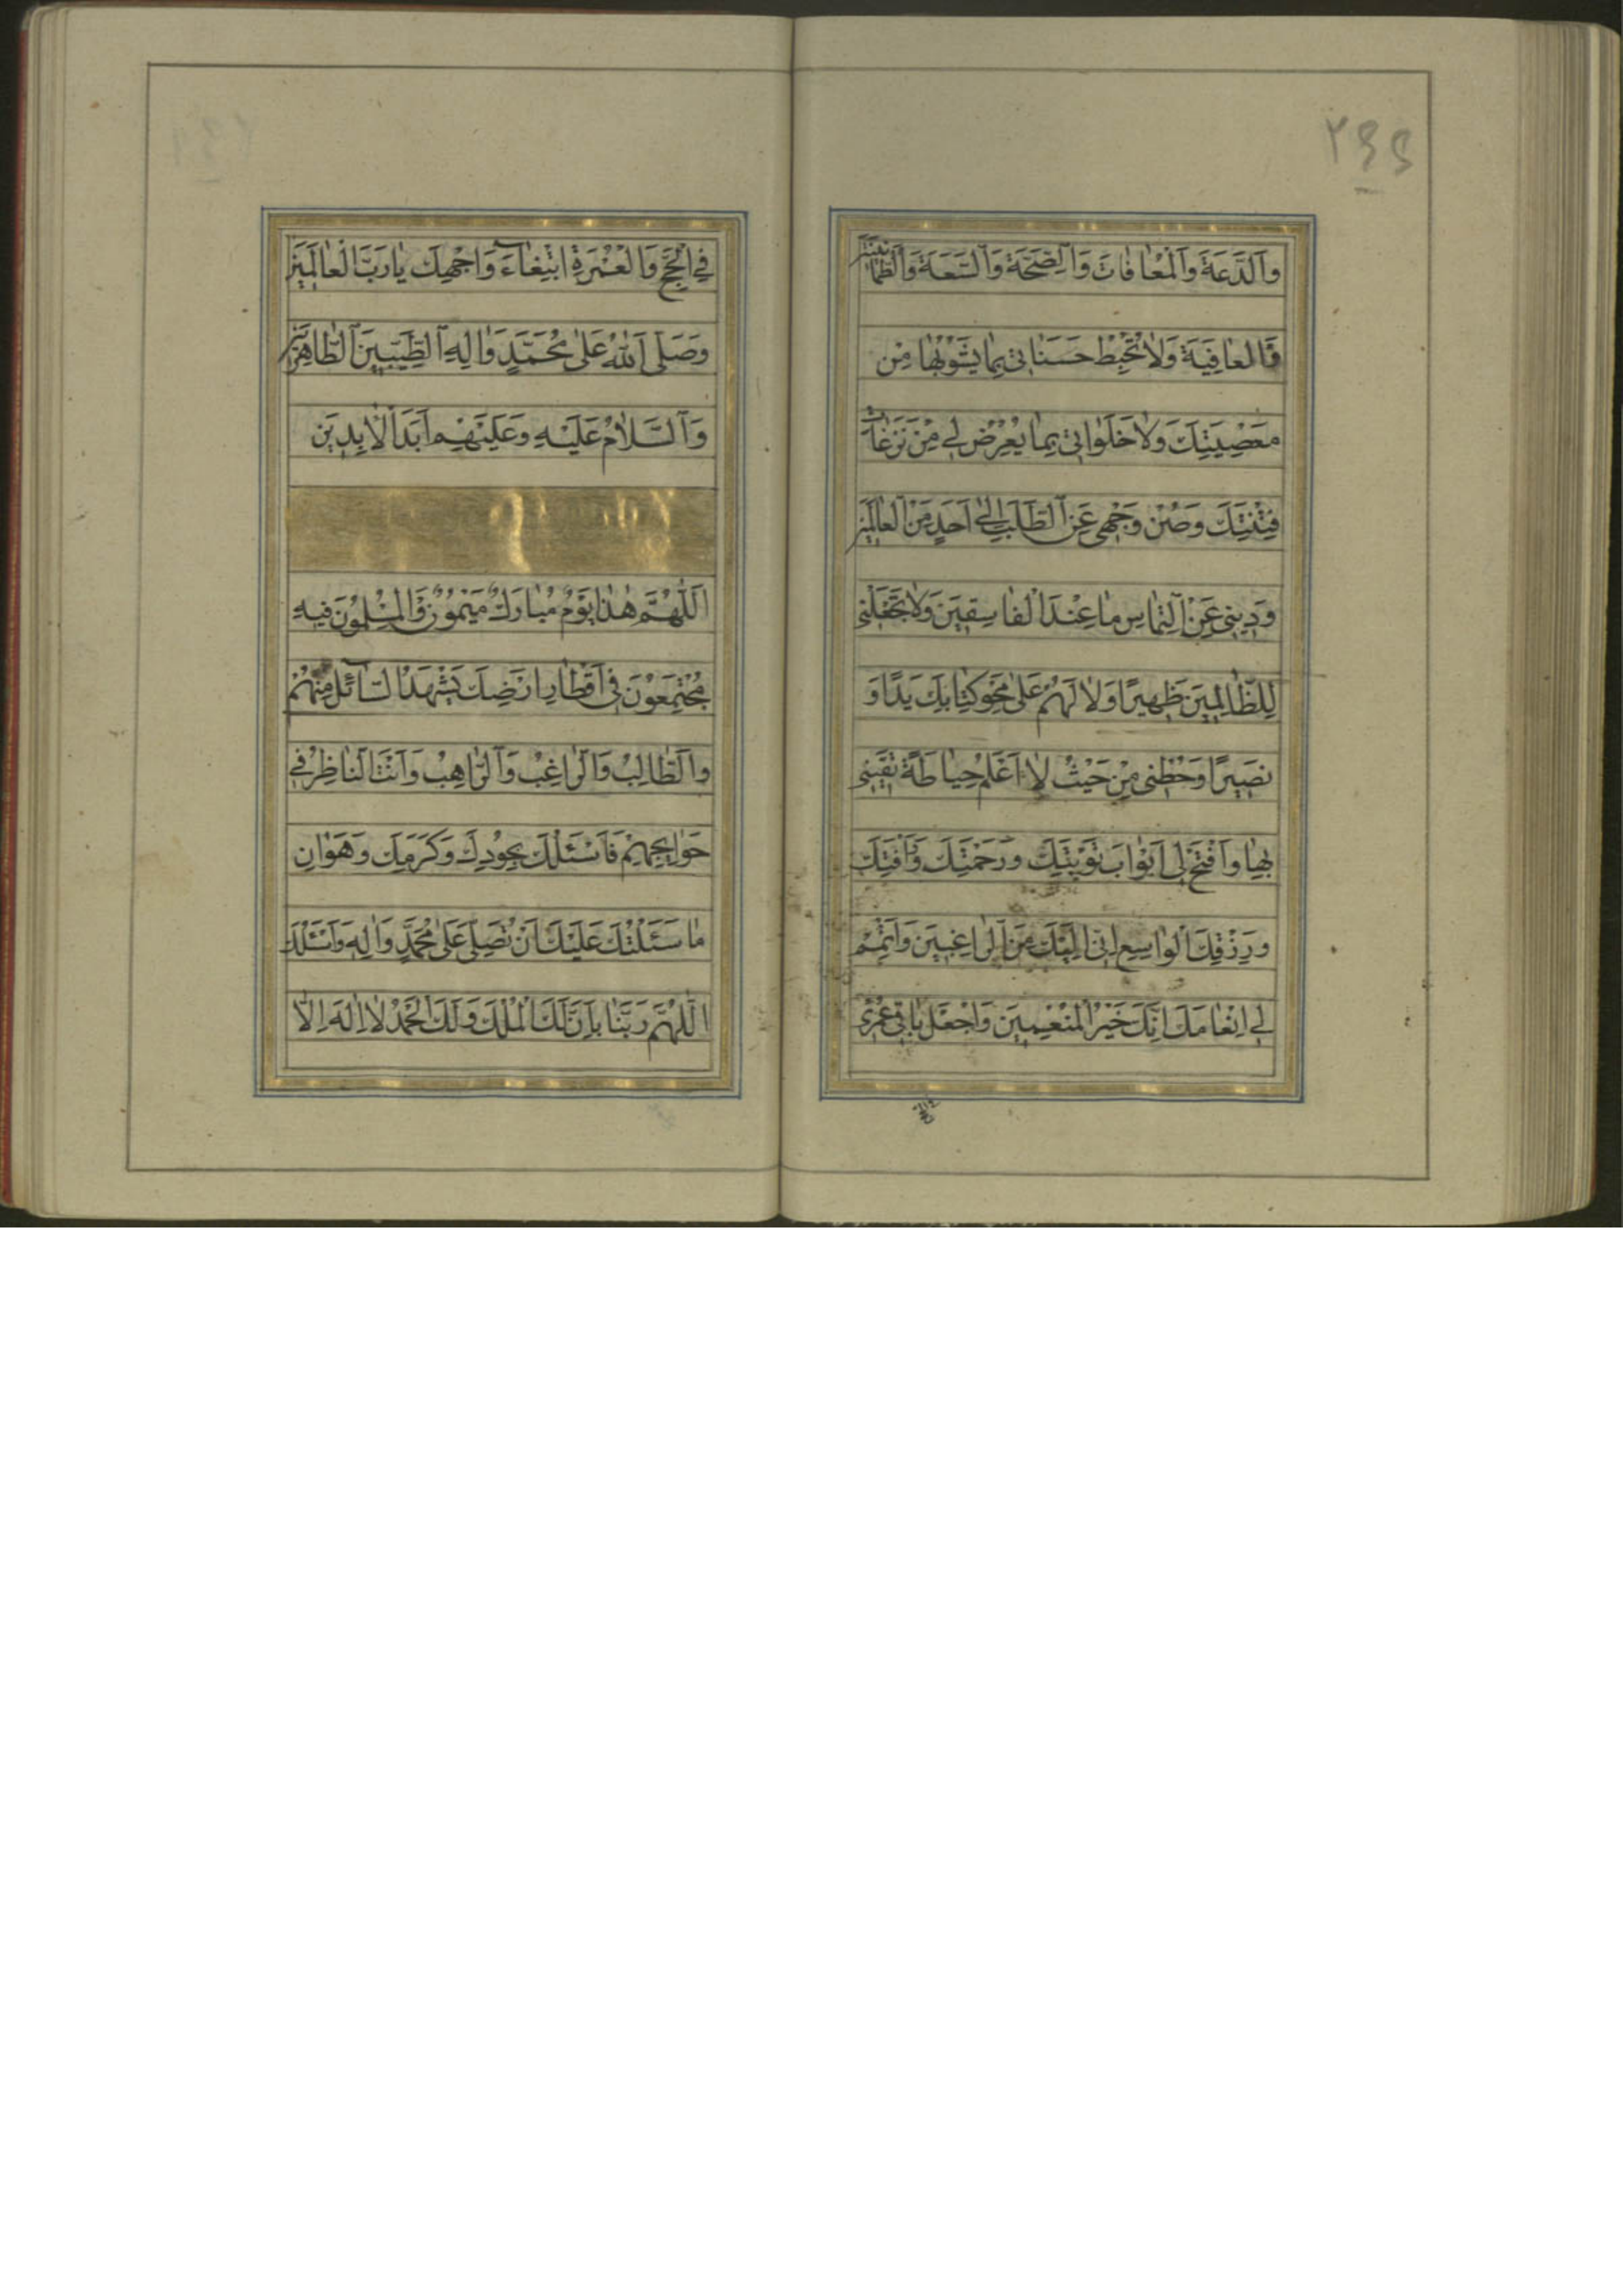 ٢٤٤
وَالدَّعَةَ وَالْمُعَافَاتَ وَالصِّحَّةَ وَالسَّعَةَ وَالطُّمَأْنِينَةَ
وَالْعَافِيَةَ وَلَا تُحْبِطْ حَسَنَاتِي بِمَا يَشُوبُهَا مِنْ
مَعْصِيَتِكَ وَلَا خَلَوَاتِي بِمَا يَعْرِضُ لِي مِنْ نَزَغَاتِ
فِتْنَتِكَ وَصُنْ وَجْهِي عَنِ الطَّلَبِ اِلَى اَحَدٍ مِنَ الْعَالَمِينَ
وَدِينِي عَنِ الْتِمَاسِ مَا عِنْدَ الْفَاسِقِينَ وَلَا تَجْعَلْنِي
لِلظَّالِمِينَ ظَهِيرًا وَلَا لَهُمْ عَلَى مَحْوِ كِتَابِكَ يَدًا وَ
نَصِيرًا وَحُطْنِي مِنْ حَيْثُ لَا اَعْلَمُ حِيَاطَةً تَقِينِي
بِهَا وَافْتَحْ لِي اَبْوَابَ تَوْبَتِكَ وَرَحْمَتِكَ وَرَأْفَتِكَ
وَرِزْقِكَ الْوَاسِعِ اِنِّي اِلَيْكَ مِنَ الرَّاغِبِينَ وَاَتْمِمْ
لِي اِنْعَامَكَ اِنَّكَ خَيْرُ الْمُنْعِمِينَ وَاجْعَلْ بَاقِيَ عُمْرِي
فِي الْحَجِّ وَالْعُمْرَةِ ابْتِغَاءَ وَاجْهِكَ يَا رَبَّ الْعَالَمِينَ
وَصَلَّى اللهُ عَلَى مُحَمَّدٍ وَالِهِ الطَّيِّبِينَ الطَّاهِرِينَ
وَالسَّلَامُ عَلَيْهِ وَعَلَيْهِمْ اَبَدَ الْاٰبِدِينَ
اَللّٰهُمَّ هٰذَا يَوْمٌ مُبَارَكٌ مَيْمُونٌ وَالْمُسْلِمُونَ فِيهِ
مُجْتَمِعُونَ فِي اَقْطَارِ اَرْضِكَ يَشْهَدُ السَّائِلُ مِنْهُمْ
وَالطَّالِبُ وَالرَّاغِبُ وَالرَّاهِبُ وَاَنْتَ النَّاظِرُ فِي
حَوَايِجِهِمْ فَاَسْئَلُكَ بِجُودِكَ وَكَرَمِكَ وَهَوَانِ
مَا سَئَلْتُكَ عَلَيْكَ اَنْ تُصَلِّيَ عَلَى مُحَمَّدٍ وَالِهِ وَاَسْئَلُكَ
اللّٰهُمَّ رَبَّنَا بِاَنَّ لَكَ الْمُلْكَ وَلَكَ الْحَمْدُ لَا اِلٰهَ اِلَّا